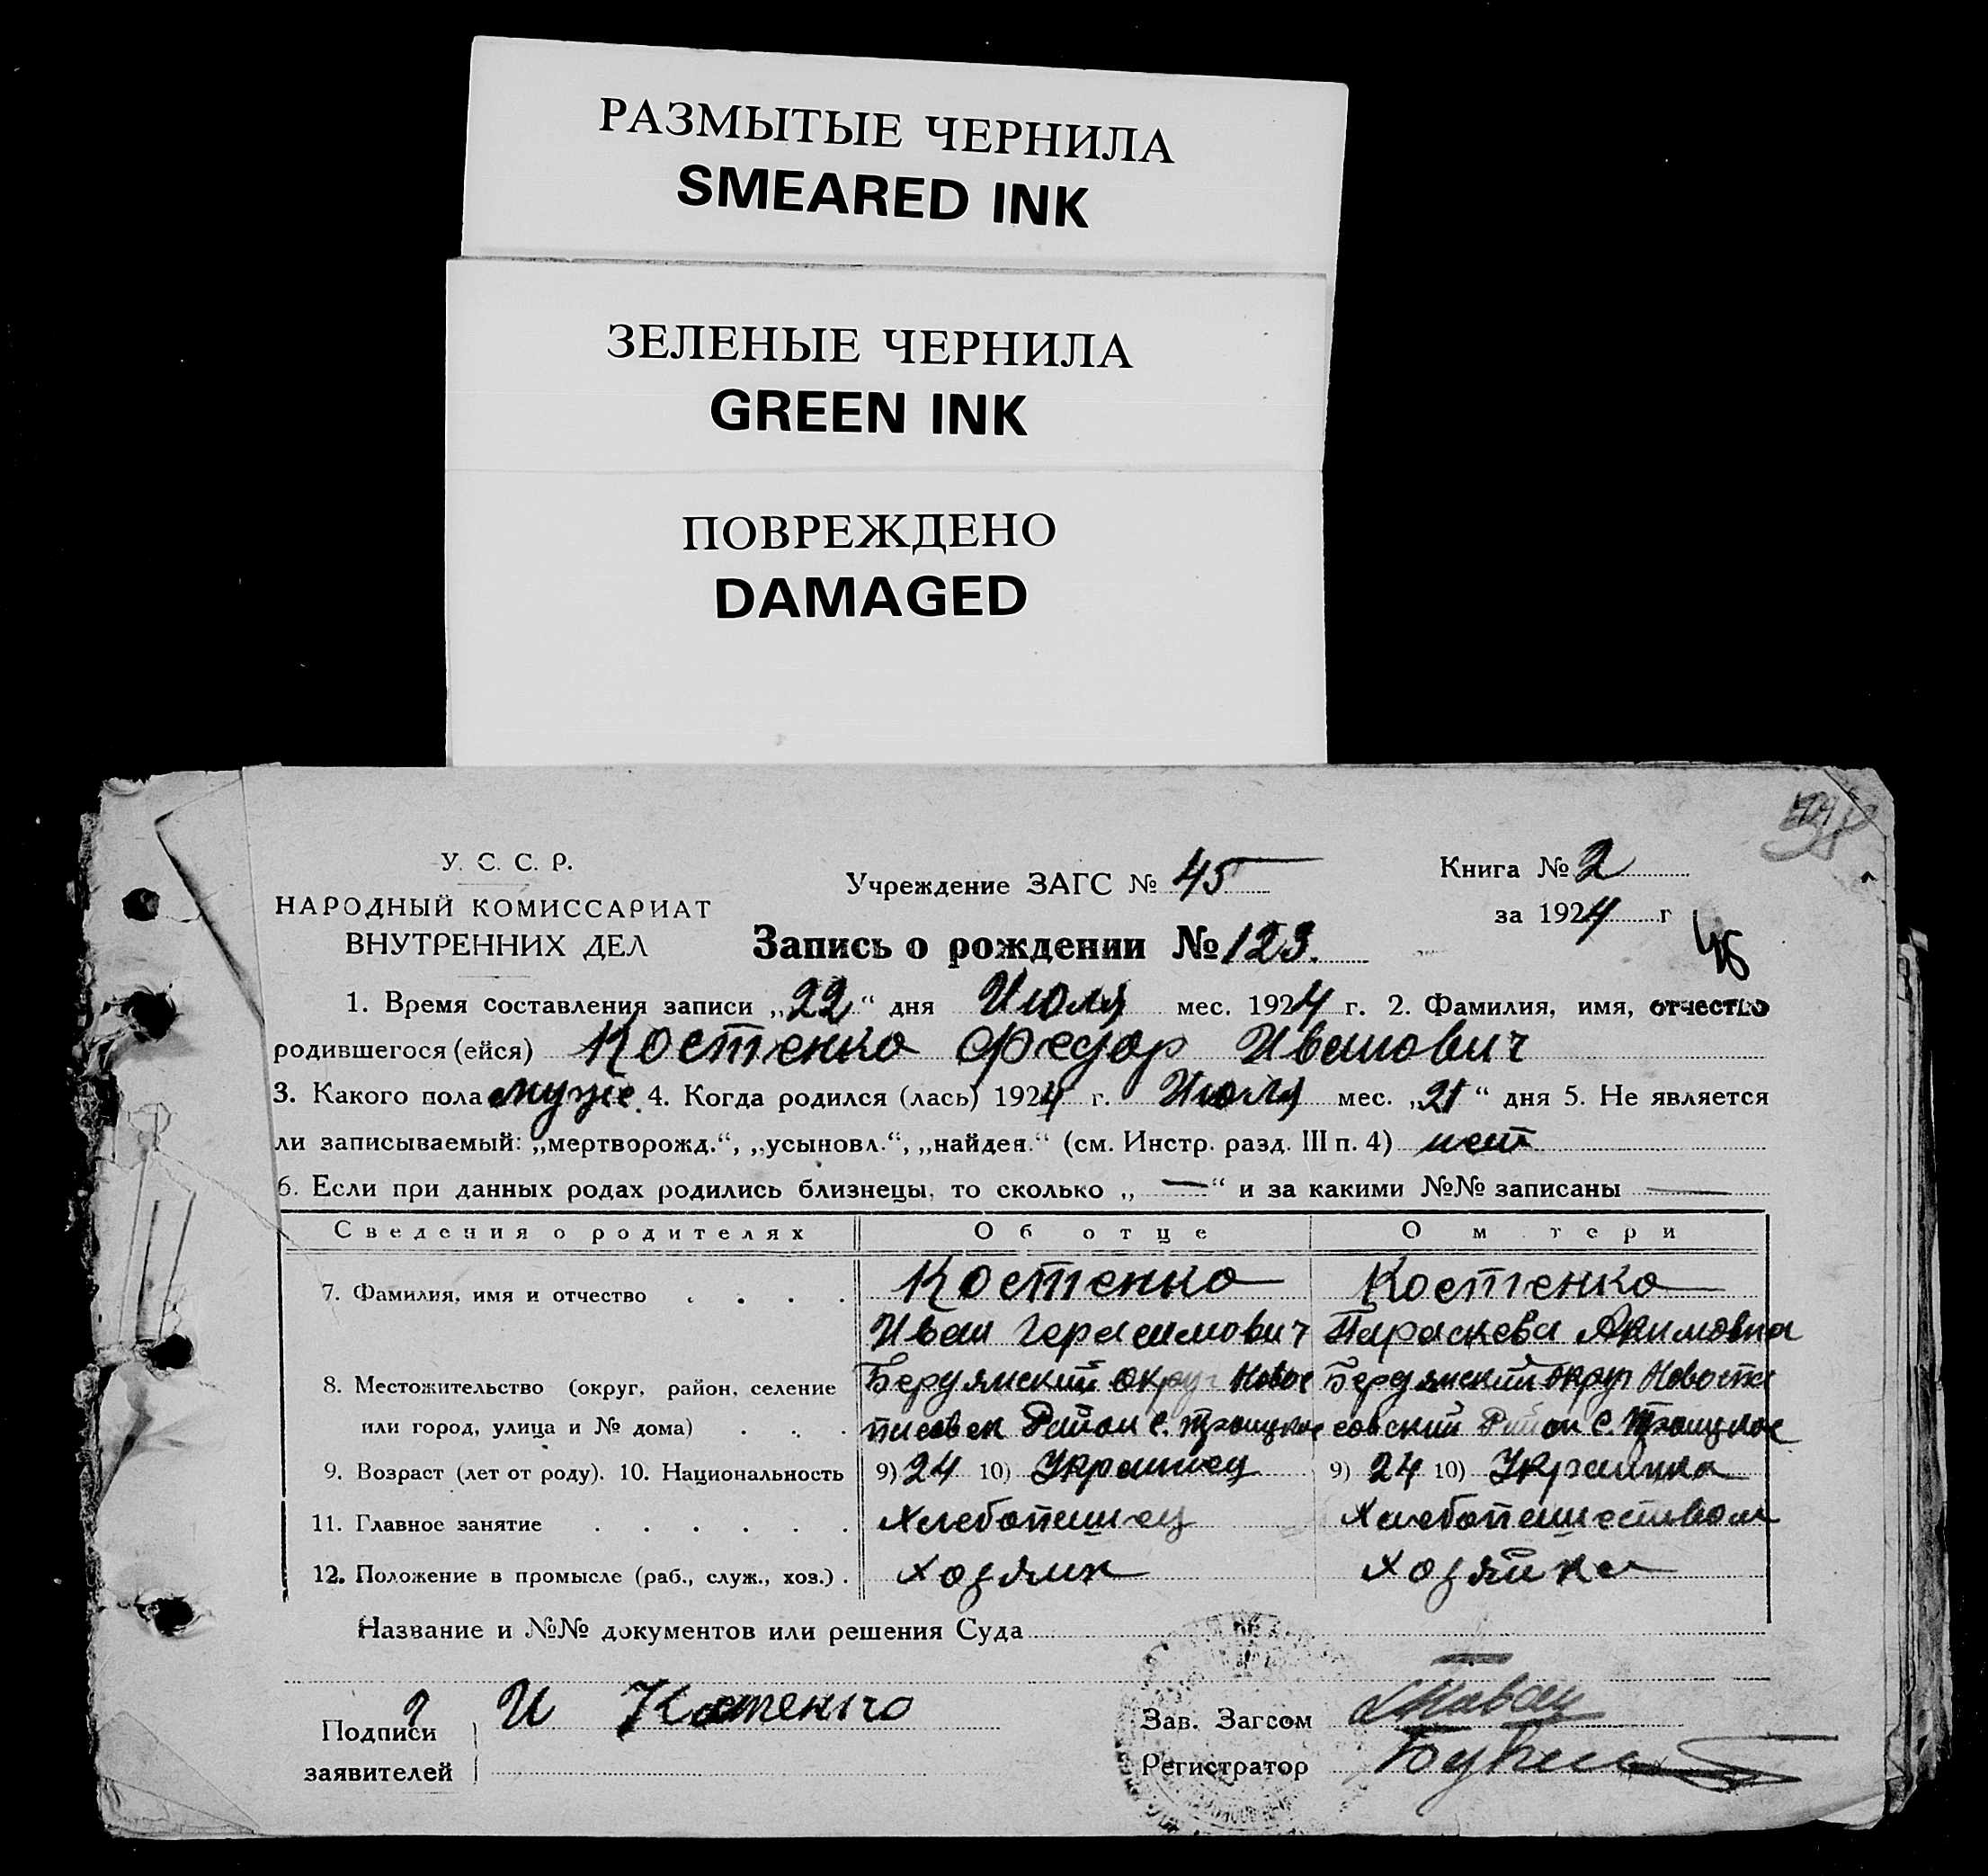 РАЗМЫТЫЕ ЧЕРНИЛА
SMEARED INK
ЗЕЛЕНЫЕ ЧЕРНИЛА
GREEN INK
ПОВРЕЖДЕНО
DAMAGED
У. С. С. Р.
НАРОДНЫЙ КОМИССАРИАТ
ВНУТРЕННИХ ДЕЛ
Учреждение ЗАГС № 45
Книга № 2
за 1924 г
45
Запись о рождении № 123.
1. Время составления записи „22“ дня Июля мес. 1924 г. 2. Фамилия, имя, отчество
родившегося (ейся) Костенко Федор Иванович
3. Какого пола муже. 4. Когда родился (лась) 1924 г. Июля мес. „21“ дня 5. Не является
ли записываемый: „мертворожд.“, „усыновл.“, „найден.“ (см. Инстр. разд. III п. 4) нет
6. Если при данных родах родились близнецы, то сколько „—“ и за какими №№ записаны —
Сведения о родителях Об отце О м тери
7. Фамилия, имя и отчество . . . . Костенко Костенко
Иван Герасимович Параскева Акимовна
8. Местожительство (округ, район, селение Бердянский округ Новос Бердянский округ Новоспа
или город, улица и № дома) . . . пасовск Район с. Троицкое совский Район с. Троицкое
9. Возраст (лет от роду). 10. Национальность 9) 24 10) Украинец 9) 24 10) Украинка
11. Главное занятие . . . . . . Хлебопашец Хлебопашеством
12. Положение в промысле (раб., служ., хоз.) . хозяин хозяйка
Название и №№ документов или решения Суда
Подписи И Костенко
заявителей
Зав. Загсом
Регистратор